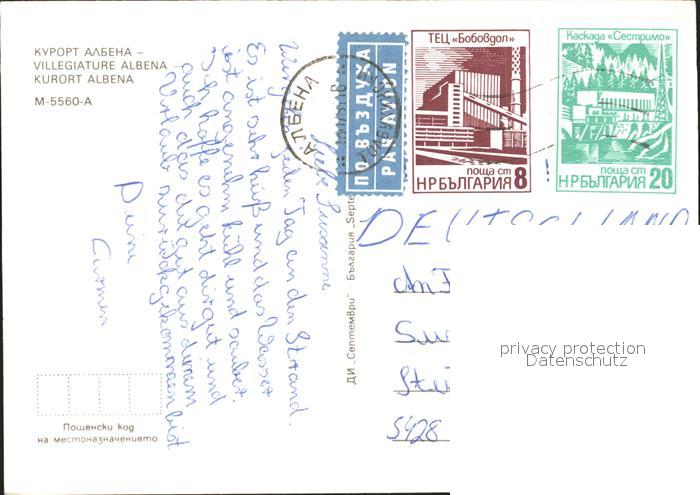 КУРОРТ АЛБЕНА –
VILLEGIATURE ALBENA –
KURORT ALBENA
М-5560-А
Liebe Susanne
Wir gehen jeden Tag an den Strand.
Es ist sehr heiß und das Wasser
ist angenehm kühl und sauber.
Ich hoffe es geht dir gut und
auch das du gut aus deinem
Urlaub zurückgekommen bist
Deine
Carmen
Пощенски код
на местоназначението
ДИ „Септември" България „Septe
ПО ВЪЗДУХА
PAR AVION
АЛБЕНА
ТЕЦ «Бобовдол»
поща ст
НРБЪЛГАРИЯ 8
Каскада «Сестримо»
поща ст
НРБЪЛГАРИЯ 20
DEUTSCHLAND
An F
Su
Stei
5428
privacy protection
Datenschutz